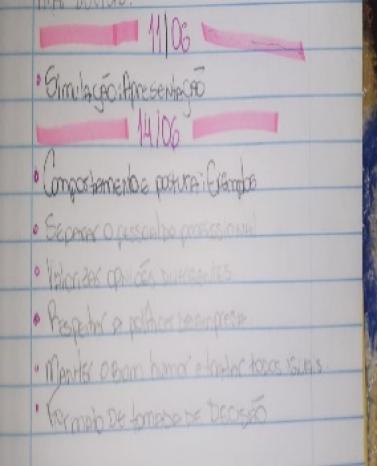 11/06
• Simulação: Apresentação
14/06
• Comportamento e postura: Exemplos
• Separar o pessoal do profissional
• Valorizar opiniões diferentes
• Respeitar a política da empresa
• Manter o bom humor e tratar todos iguais.
• de tomada de Decisão